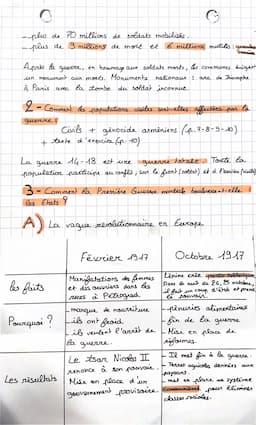 - plus de 70 millions de soldats mobilisés.
- plus de 3 millions de mort et 6 millions mutilés
Après la guerre, en hommage aux soldats morts, les communes érigent
un monument aux morts. Monuments nationaux : arc de Triomphe
à Paris avec la tombe du soldat inconnu.
2 - Comment les populations civiles sont-elles affectées par la
guerre :
Civils + génocide arméniens (p. 7-8-9-10)
+ texte d'exercice (p. 10)
La guerre 14-18 est une guerre totale. Toute la
population participe au conflit, sur le front (soldats) et à l'arrière (civils)
3 - Comment la Première Guerre mondiale bouleverse-t-elle
les Etats ?
A) La vague révolutionnaire en Europe
Février 1917
Octobre 1917
les faits
Manifestations de femmes
et des ouvriers dans les
rues à Petrograd.
Lénine crie
Dans la nuit du 24, 25 octobre,
il fait un coup d'état et prend
le pouvoir.
Pourquoi ?
- manque de nourriture
- ils ont froid
- ils veulent l'arrêt de
la guerre.
- pénuries alimentaires
- fin de la guerre
- Mise en place de
réformes.
Les résultats
- Le tsar Nicolas II
renonce à son pouvoir.
- Mise en place d'un
gouvernement provisoire.
- Il met fin à la guerre.
- Terres agricoles données aux
paysans.
- met en place un système
communiste pour éliminer
classes sociales.